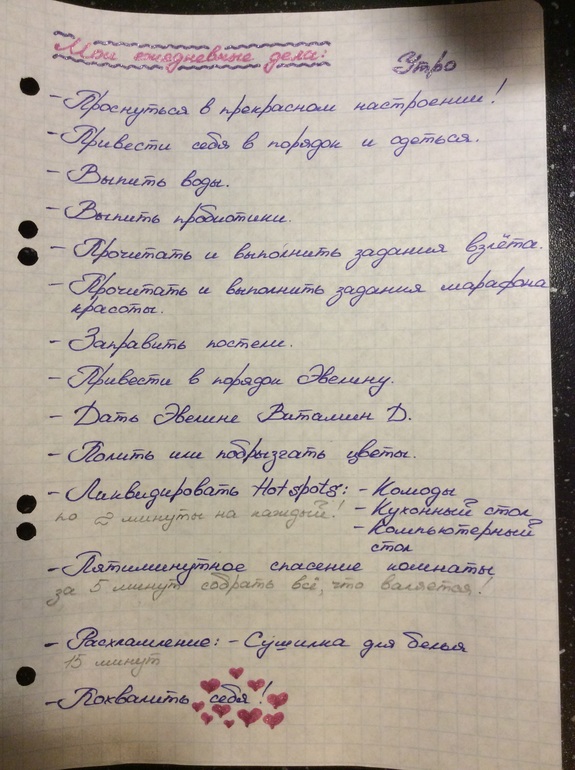 Мои ежедневные дела:
Утро
- Проснуться в прекрасном настроении!
- Привести себя в порядок и одеться.
- Выпить воды.
- Выпить пробиотики.
- Прочитать и выполнить задания взлёта.
- Прочитать и выполнить задания марафона
красоты.
- Заправить постели.
- Привести в порядок Эвелину.
- Дать Эвелине Витамин D.
- Полить или побрызгать цветы.
- Ликвидировать Hot spots: - Комоды
по 2 минуты на каждый! - Кухонный стол
- Компьютерный
стол
- Пятиминутное спасение комнаты
за 5 минут собрать всё, что валяется!
- Расхламление: - Сушилка для белья
15 минут
- Похвалить себя!